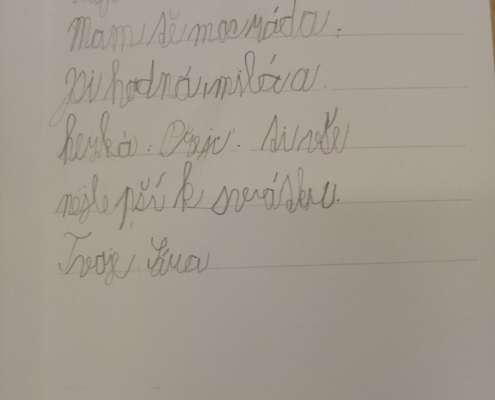 Mam tě moc ráda.
Jsi hodná, milá a
hezká. Přeju ti vše
nejlepší k svátku.
Tvoje